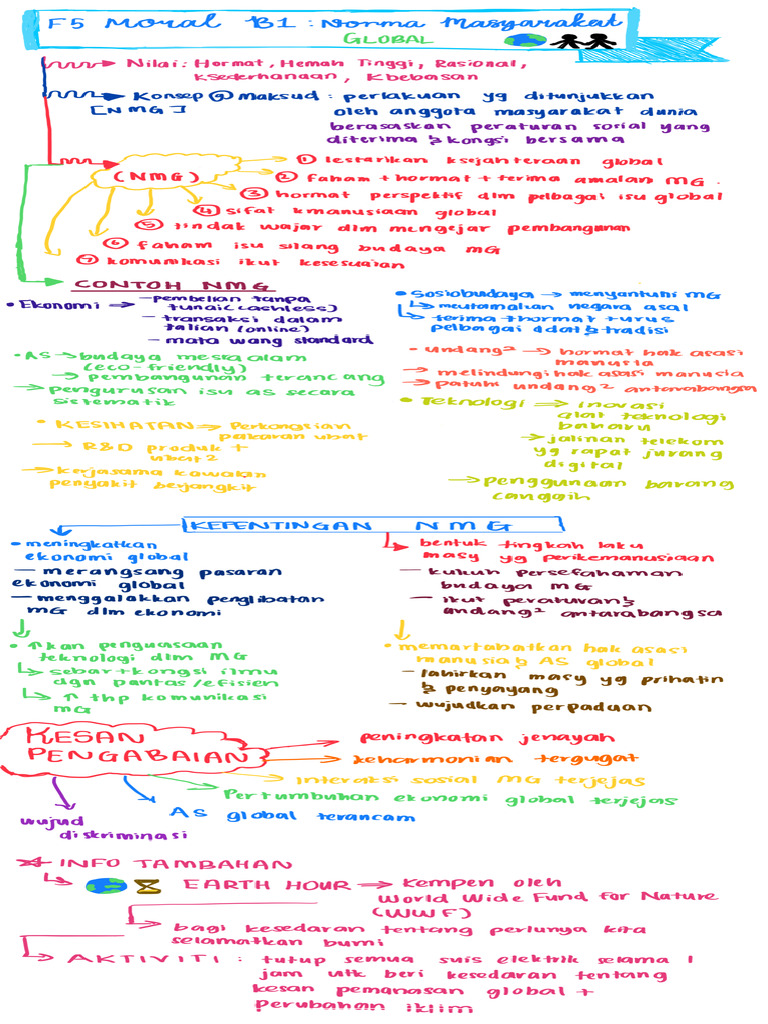 F5 Moral B1 : Norma Masyarakat
GLOBAL
Nilai : Hormat, Hemah Tinggi, Rasional,
Ksederhanaan, Kbebasan
Konsep & Maksud : perlakuan yg ditunjukkan
[NMG] oleh anggota masyarakat dunia
berasaskan peraturan sosial yang
diterima & kongsi bersama
(NMG)
① lestarikan ksejahteraan global
② faham + hormat + terima amalan MG.
③ hormat perspektif dlm pelbagai isu global
④ sifat kmanusiaan global
⑤ tindak wajar dlm mengejar pembangunan
⑥ faham isu silang budaya MG
⑦ komunikasi ikut kesesuaian
CONTOH NMG
• Ekonomi → - pembelian tanpa
tunai (cashless)
- transaksi dalam
talian (online)
- mata wang standard
• AS → budaya mesra alam
(eco-friendly)
→ pembangunan terancang
→ pengurusan isu as secara
sistematik
• KESIHATAN → Perkongsian
pakaran ubat
→ R&D produk +
ubat2
→ kerjasama kawalan
penyakit berjangkit
• Sosiobudaya → menyantuni MG
↳ mengutamakan negara asal
↳ terima + hormat + urus
pelbagai adat & tradisi
• undang² → hormat hak asasi
manusia
→ melindungi hak asasi manusia
→ patuhi undang² antarabangsa
• Teknologi → Inovasi
alat teknologi
baharu
→ jalinan telekom
yg rapat jurang
digital
→ penggunaan barang
canggih
KEPENTINGAN NMG
• meningkatkan
ekonomi global
- merangsang pasaran
ekonomi global
- menggalakkan penglibatan
MG dlm ekonomi
• ↑kan penguasaan
teknologi dlm MG
↳ sebar + kongsi ilmu
dgn pantas/efisien
↳ ↑ thp komunikasi
MG
• bentuk tingkah laku
masy yg perikemanusiaan
- kukuh persefahaman
budaya MG
- ikut peraturan &
undang² antarabangsa
• memartabatkan hak asasi
manusia & AS global
- lahirkan masy yg prihatin
& penyayang
- wujudkan perpaduan
KESAN
PENGABAIAN
→ peningkatan jenayah
→ keharmonian tergugat
→ Interaksi sosial MG terjejas
→ Pertumbuhan ekonomi global terjejas
AS global terancam
wujud
diskriminasi
☆ INFO TAMBAHAN
↳ EARTH HOUR → Kempen oleh
World Wide Fund for Nature
(WWF)
→ bagi kesedaran tentang perlunya kita
selamatkan bumi
→ AKTIVITI : tutup semua suis elektrik selama 1
jam utk beri kesedaran tentang
kesan pemanasan global +
perubahan iklim